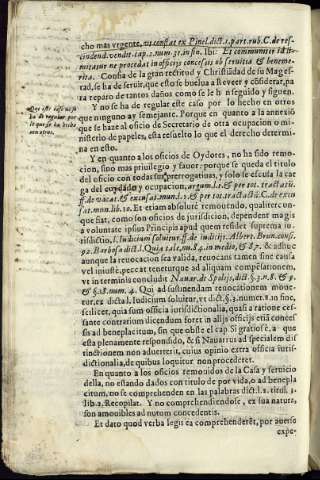 cho mas vrgente, vt constat ex Pinel. dict. 1. part. rub. C. de res-
cindend. vendit. cap. 2. num. 31. in fin. Ibi: Et communiter
ne procedat in officijs concessis ob seruitia & beneme-
rita. Consta de la gran rectitud y Christiãdad de su Mages-
tad, se ha de seruir, que esto se buelua a veer y cõsiderar, pa
ra reparo de tantos daños como se le hã seguido y siguen.
Y no se ha de regular este caso por lo hecho en otros
que ninguno ay semejante. Porque en quanto a la annexiõ
que se haze al oficio de Secretario de otra ocupacion o mi-
nisterio de papeles, esta resuelto lo que el derecho determi
na en esto.
Que este caso no se
ha de regular por
lo que se ha hecho
con otros.
Y en quanto a los oficios de Oydores, no ha sido remo-
cion, sino mas priuilegio y fauor: porque se queda el titulo
del oficio con todas sus prerrogatiuas, y solo se escusa la car
ga del cuydado y ocupacion, argum. l. 1. & per tot. tractatu
ff. de vacat. & excusat. mun. l. 1. & per tot. tractatũ C. de excu
sat. mun. lib. 10. Et etiam absolute remouendo, qualitercon-
que fiat, como son oficios de jurisdicion, dependent magis
a voluntate ipsius Principis apud quem residet suprema iu-
risdictio, l. Iudicium soluitur. ff. de Iudicijs. Albert. Brun. cons.
92. Barbosa dict. l. Quia tale, in medio, & 87. & adhuc
aunque la reuocacion sea valida, reuocans tamen sine causa
vel iniuste, peccat teneturque ad aliquam compẽsationem,
vt in terminis concludit Nauar. de Spolijs, dict. §. 2. n. 8. & 9.
& §. 18. num. 4. Qui ad sustinendam reuocationem moue-
tur, ex dicta l. Iudicium soluitur, vt dict. §. 3. numer. 8. in fine,
scilicet, quia sum officia iurisdictionalia, quasi a ratione ces-
sante contrarium dicendum foret in alijs officijs etiã conces
sis ad beneplacitum, sin que obste el cap. Si gratiose, a que
esta plenamente respondido, & si Nauarrus ad specialem dis
tinctionem non aduerterit, cuius opinio extra officia iuris-
dictionalia, de quibus loquitur non procederet.
En quanto a los oficios remouidos de la Casa y seruicio
della, no estando dados con titulo de por vida, o ad benepla
citum, no se comprehenden en las palabras dict. l. 2. titul. 3.
lib. 2. Recopilat. Y no comprehendiendose, ex sua natura,
son amouibles ad nutum concedentis.
Et dato quod verba legis ea comprehenderẽt, por auerse
expe-